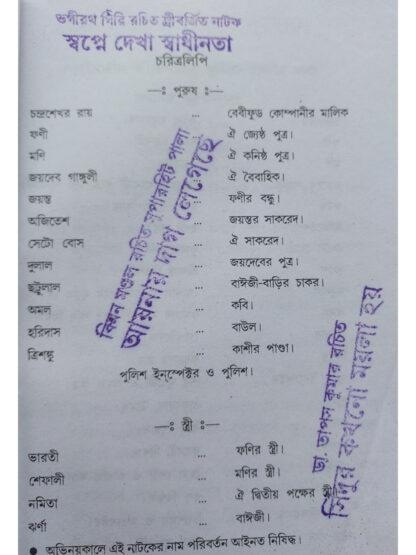 ভগীরথ গিরি রচিত স্ত্রীবর্জিত নাটক
স্বপ্নে দেখা স্বাধীনতা
চরিত্রলিপি
—ঃ পুরুষ ঃ—
চন্দ্রশেখর রায় ... বেবীফুড কোম্পানীর মালিক
ফণী ... ঐ জ্যেষ্ঠ পুত্র।
মণি ... ঐ কনিষ্ঠ পুত্র।
জয়দেব গাঙ্গুলী ... ঐ বৈবাহিক।
জয়ন্ত ... ফণীর বন্ধু।
অজিতেশ ... জয়ন্তর সাকরেদ।
সেটো বোস ... ঐ সাকরেদ।
দুলাল ... জয়দেবের পুত্র।
ছটুলাল ... বাঈজী-বাড়ির চাকর।
অমল ... কবি।
হরিদাস ... বাউল।
ত্রিশঙ্কু ... কাশীর পাণ্ডা।
পুলিশ ইন্‌স্পেক্টর ও পুলিশ।
—ঃ স্ত্রী ঃ—
ভারতী ... ফণির স্ত্রী।
শেফালী ... মণির স্ত্রী।
নমিতা ... ঐ দ্বিতীয় পক্ষের স্ত্রী।
ঝর্ণা ... বাঈজী।
● অভিনয়কালে এই নাটকের নাম পরিবর্তন আইনত নিষিদ্ধ।
রচিত সুপারহিট পালা
আয়নায় দাগ লেগেছে
ডা. তাপস কুমার রচিত
সিন্দুর কখনো ময়লা হয়